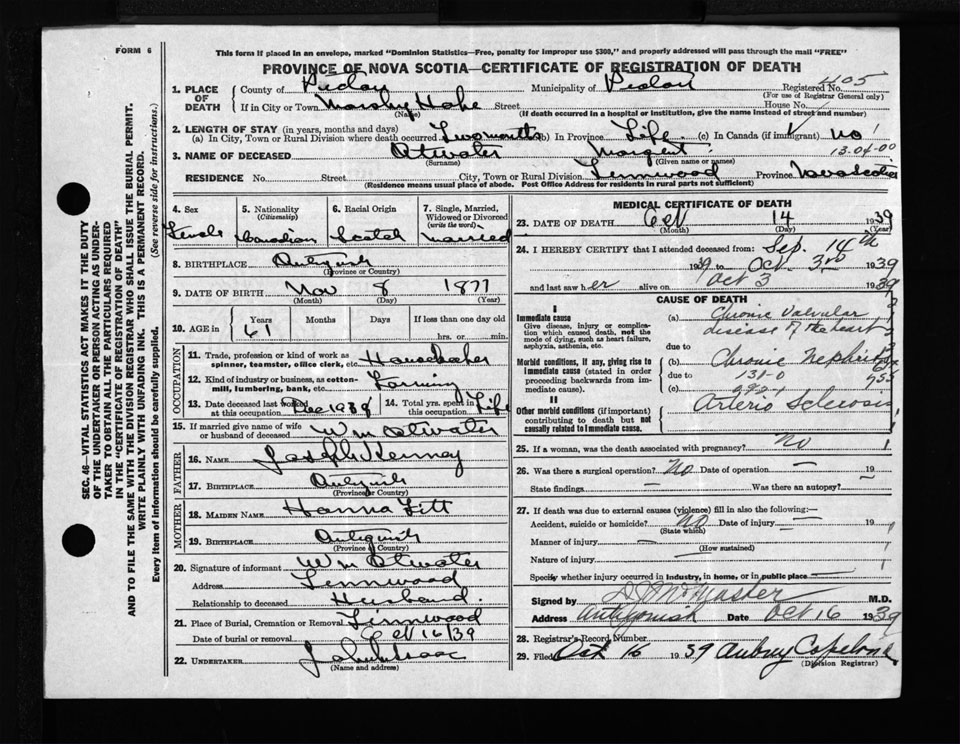 FORM 6
This form if placed in an envelope, marked "Dominion Statistics—Free, penalty for improper use $300," and properly addressed will pass through the mail "FREE"
PROVINCE OF NOVA SCOTIA—CERTIFICATE OF REGISTRATION OF DEATH
SEC. 46—VITAL STATISTICS ACT MAKES IT THE DUTY
OF THE UNDERTAKER OR PERSON ACTING AS UNDER-
TAKER TO OBTAIN ALL THE PARTICULARS REQUIRED
IN THE "CERTIFICATE OF REGISTRATION OF DEATH"
AND TO FILE THE SAME WITH THE DIVISION REGISTRAR WHO SHALL ISSUE THE BURIAL PERMIT.
WRITE PLAINLY WITH UNFADING INK. THIS IS A PERMANENT RECORD.
Every item of information should be carefully supplied. (See reverse side for instructions.)
1. PLACE OF DEATH
County of Pictou Municipality of Pictou Registered No. 405
(For use of Registrar General only)
If in City or Town Marshy Hope Street House No.
(Name) (If death occurred in a hospital or institution, give the name instead of street and number)
2. LENGTH OF STAY (in years, months and days)
(a) In City, Town or Rural Division where death occurred Two months (b) In Province Life (c) In Canada (if immigrant) no
13-04-00
3. NAME OF DECEASED Atwater Margret
(Surname) (Given name or names)
RESIDENCE No. Street City, Town or Rural Division Linwood Province Nova Scotia
(Residence means usual place of abode. Post Office Address for residents in rural parts not sufficient)
4. Sex Female
5. Nationality (Citizenship) Canadian
6. Racial Origin Scotch
7. Single, Married, Widowed or Divorced (write the word) Married
8. BIRTHPLACE
(Province or Country)
9. DATE OF BIRTH Nov 8 1877
(Month) (Day) (Year)
10. AGE in Years Months Days If less than one day old
61 hrs. or min.
OCCUPATION
11. Trade, profession or kind of work as spinner, teamster, office clerk, etc. Housekeeper
12. Kind of industry or business, as cotton-mill, lumbering, bank, etc. Farming
13. Date deceased last worked at this occupation Dec 1938
14. Total yrs. spent in this occupation Life
15. If married give name of wife or husband of deceased Wm Atwater
FATHER
16. NAME Joseph Kenney
17. BIRTHPLACE
(Province or Country)
MOTHER
18. MAIDEN NAME Hanna
19. BIRTHPLACE
(Province or Country)
20. Signature of informant Wm Atwater
Address Linwood
Relationship to deceased Husband.
21. Place of Burial, Cremation or Removal Linwood
Date of burial or removal Oct 16/39
22. UNDERTAKER John Isaac
(Name and address)
MEDICAL CERTIFICATE OF DEATH
23. DATE OF DEATH Oct 14 1939
(Month) (Day) (Year)
24. I HEREBY CERTIFY that I attended deceased from: Sep. 14th
1939 to Oct. 3rd 1939
and last saw her alive on Oct 3 1939
CAUSE OF DEATH
I
Immediate cause
Give disease, injury or complication which caused death, not the mode of dying, such as heart failure, asphyxia, asthenia, etc.
(a) Chronic Valvular
disease of the heart
due to
Morbid conditions, if any, giving rise to immediate cause (stated in order proceeding backwards from immediate cause).
(b) Chronic Nephritis
due to 131-0
(c)
II
Other morbid conditions (if important) contributing to death but not causally related to immediate cause.
Arterio Sclerosis
25. If a woman, was the death associated with pregnancy? No
26. Was there a surgical operation? No Date of operation — 19
State findings — Was there an autopsy? —
27. If death was due to external causes (violence) fill in also the following:—
Accident, suicide or homicide? No Date of injury — 19
(State which)
Manner of injury —
(How sustained)
Nature of injury —
Specify whether injury occurred in industry, in home, or in public place —
Signed by McMaster M.D.
Address Antigonish Date Oct 16 1939
28. Registrar's Record Number
29. Filed Oct 16 1939 Aubrey Copeland
(Division Registrar)